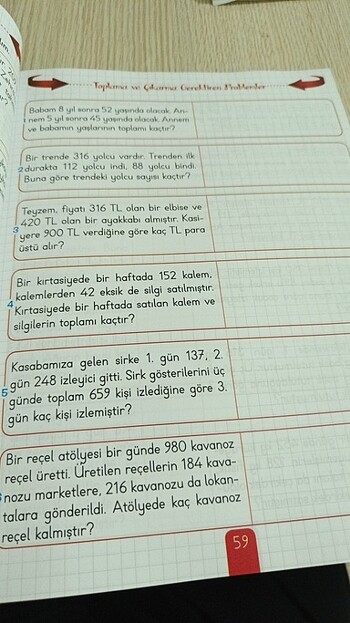 Toplama ve Çıkarma Gerektiren Problemler
Babam 8 yıl sonra 52 yaşında olacak. An-
1 nem 5 yıl sonra 45 yaşında olacak. Annem
ve babamın yaşlarının toplamı kaçtır?
Bir trende 316 yolcu vardır. Trenden ilk
2 durakta 112 yolcu indi, 88 yolcu bindi.
Buna göre trendeki yolcu sayısı kaçtır?
Teyzem, fiyatı 316 TL olan bir elbise ve
3 420 TL olan bir ayakkabı almıştır. Kasi-
yere 900 TL verdiğine göre kaç TL para
üstü alır?
Bir kırtasiyede bir haftada 152 kalem,
kalemlerden 42 eksik de silgi satılmıştır.
4 Kırtasiyede bir haftada satılan kalem ve
silgilerin toplamı kaçtır?
Kasabamıza gelen sirke 1. gün 137, 2.
gün 248 izleyici gitti. Sirk gösterilerini üç
5 günde toplam 659 kişi izlediğine göre 3.
gün kaç kişi izlemiştir?
Bir reçel atölyesi bir günde 980 kavanoz
reçel üretti. Üretilen reçellerin 184 kava-
nozu marketlere, 216 kavanozu da lokan-
talara gönderildi. Atölyede kaç kavanoz
reçel kalmıştır?
59